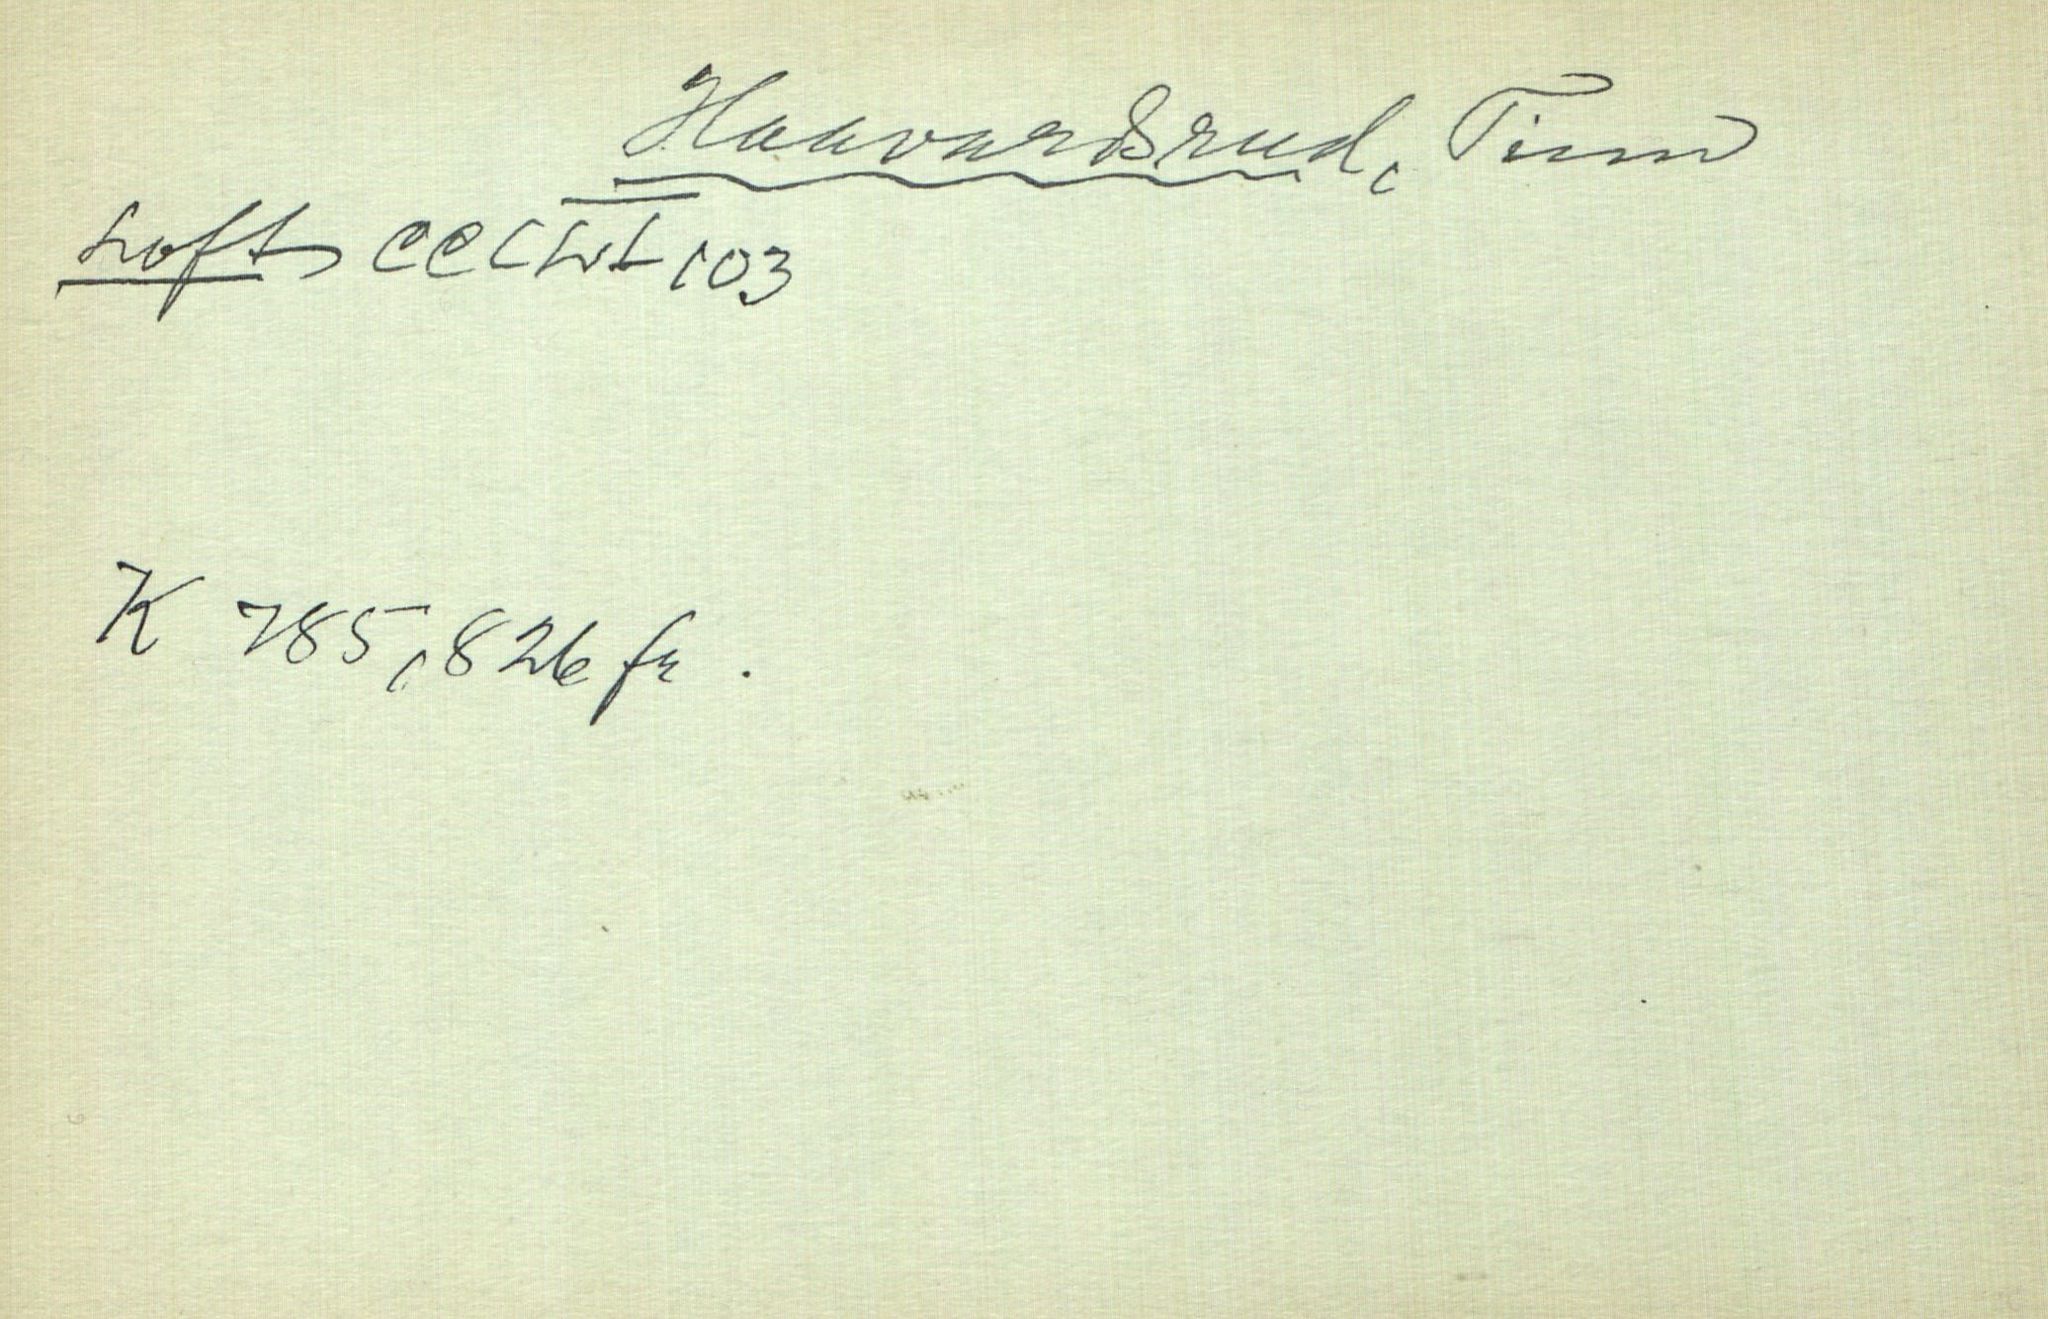 Haavardsrud, Tinn
Loft, CCLWL 103
K 785, 826 fr.